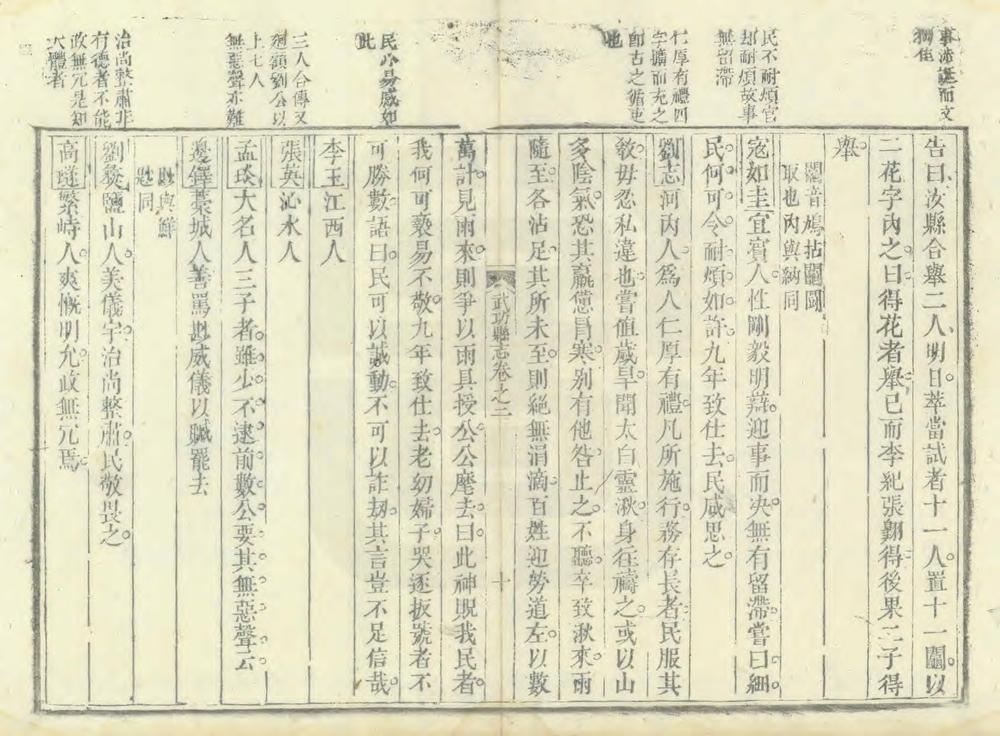 事涉誕而文
獨佳
民不耐煩官
却耐煩故事
無留滯
仁厚有禮四
字擴而充之
即古之循吏
也
民心易感如
此
三人合傳又
廻顧劉公以
上七人
無惡聲亦難
治尚整肅非
有德者不能
政無冗是知
大體者
告曰汝縣合舉二人明日萃當試者十一人置十一鬮以
二花字內之曰得花者舉已而李紀張翺得後果二子得
舉
鬮音鳩拈鬮鬭
取也內與納同
寇如圭宜賓人性剛毅明燕迎事而决無有留滯嘗曰細
民何可令耐煩如許九年致仕去民咸思之
劉志河內人爲人仁厚有禮凡所施行務存長者民服其
敎毋忍私違也嘗值歲旱聞太白靈湫身往禱之或以山
多陰氣恐其羸憊冒寒别有他咎止之不聽卒致湫來雨
隨至各沾足其所未至則絕無涓滴百姓迎勞道左以數
萬計見雨來則爭以雨具授公公麾去曰此神貺我民者
我何可褻易不敬九年致仕去老幼婦子哭逐扳號者不
可勝數語曰民可以誠動不可以詐刼其言豈不足信哉
李玉江西人
張英沁水人
孟琰大名人三子者雖少不逮前數公要其無惡聲云
邊鐸藁城人善罵尠威儀以贓罷去
尠與鮮
尠同
劉發鹽山人美儀宇治尚整肅民敬畏之
高璲繁峙人爽慨明允政無冗焉
武功縣志卷之二
十